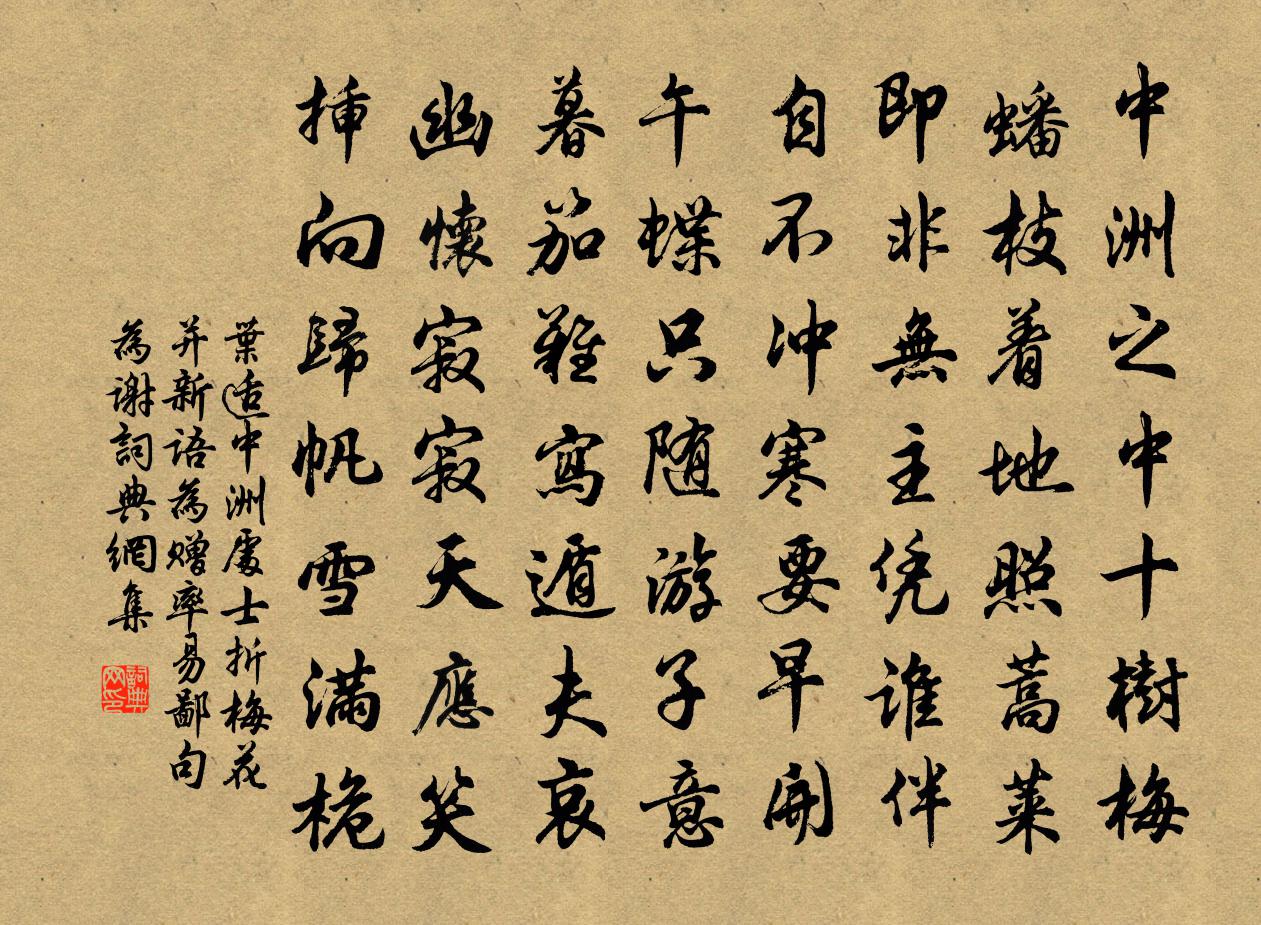 中洲之中十樹梅
蟠枝着地照蒿萊
即非無主凭誰伴
自不冲寒要早開
午蝶只随游子意
暮笳難寫遁夫哀
幽懷寂寂天應笑
挿向歸帆雪滿桅
葉适中洲處士折梅花
并新語為赠率易鄙句
為谢詞典網集
詞典网印